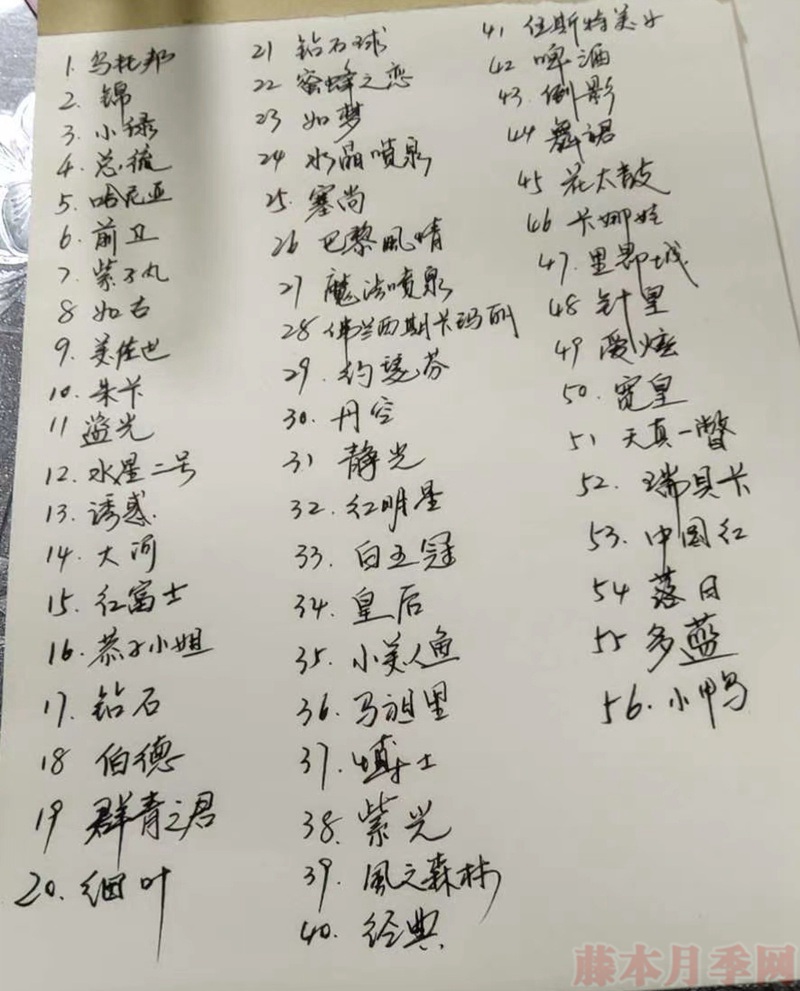 1. 乌托邦
2. 锦
3. 小绿
4. 总统
5. 哈尼亚
6. 前卫
7. 紫玉丸
8 如古
9. 美佳也
10. 朱卡
11 溢光
12. 水星二号
13. 诱惑
14. 大河
15. 红富士
16. 恭子小姐
17. 钻石
18 伯德
19 群青之君
20. 细叶
21 钻石球
22 蜜蜂之恋
23 如梦
24 水晶喷泉
25. 塞尚
26 巴黎風情
27 魔法喷泉
28 佛兰西斯卡玛丽
29. 约瑟芬
30. 丹空
31 静光
32. 红明星
33. 白王冠
34. 皇后
35. 小美人鱼
36. 马祖里
37. 博士
38. 紫光
39. 風之森林
40. 经典
41 伍斯特美女
42 啤酒
43. 倒影
44 舞裙
45 花太鼓
46 卡娜娃
47. 里昂城
48 针皇
49 炫
50. 宽皇
51 天真一瞥
52. 瑞贝卡
53. 中国红
54 落日
55 多蓝
56. 小鸭
藤本月季网